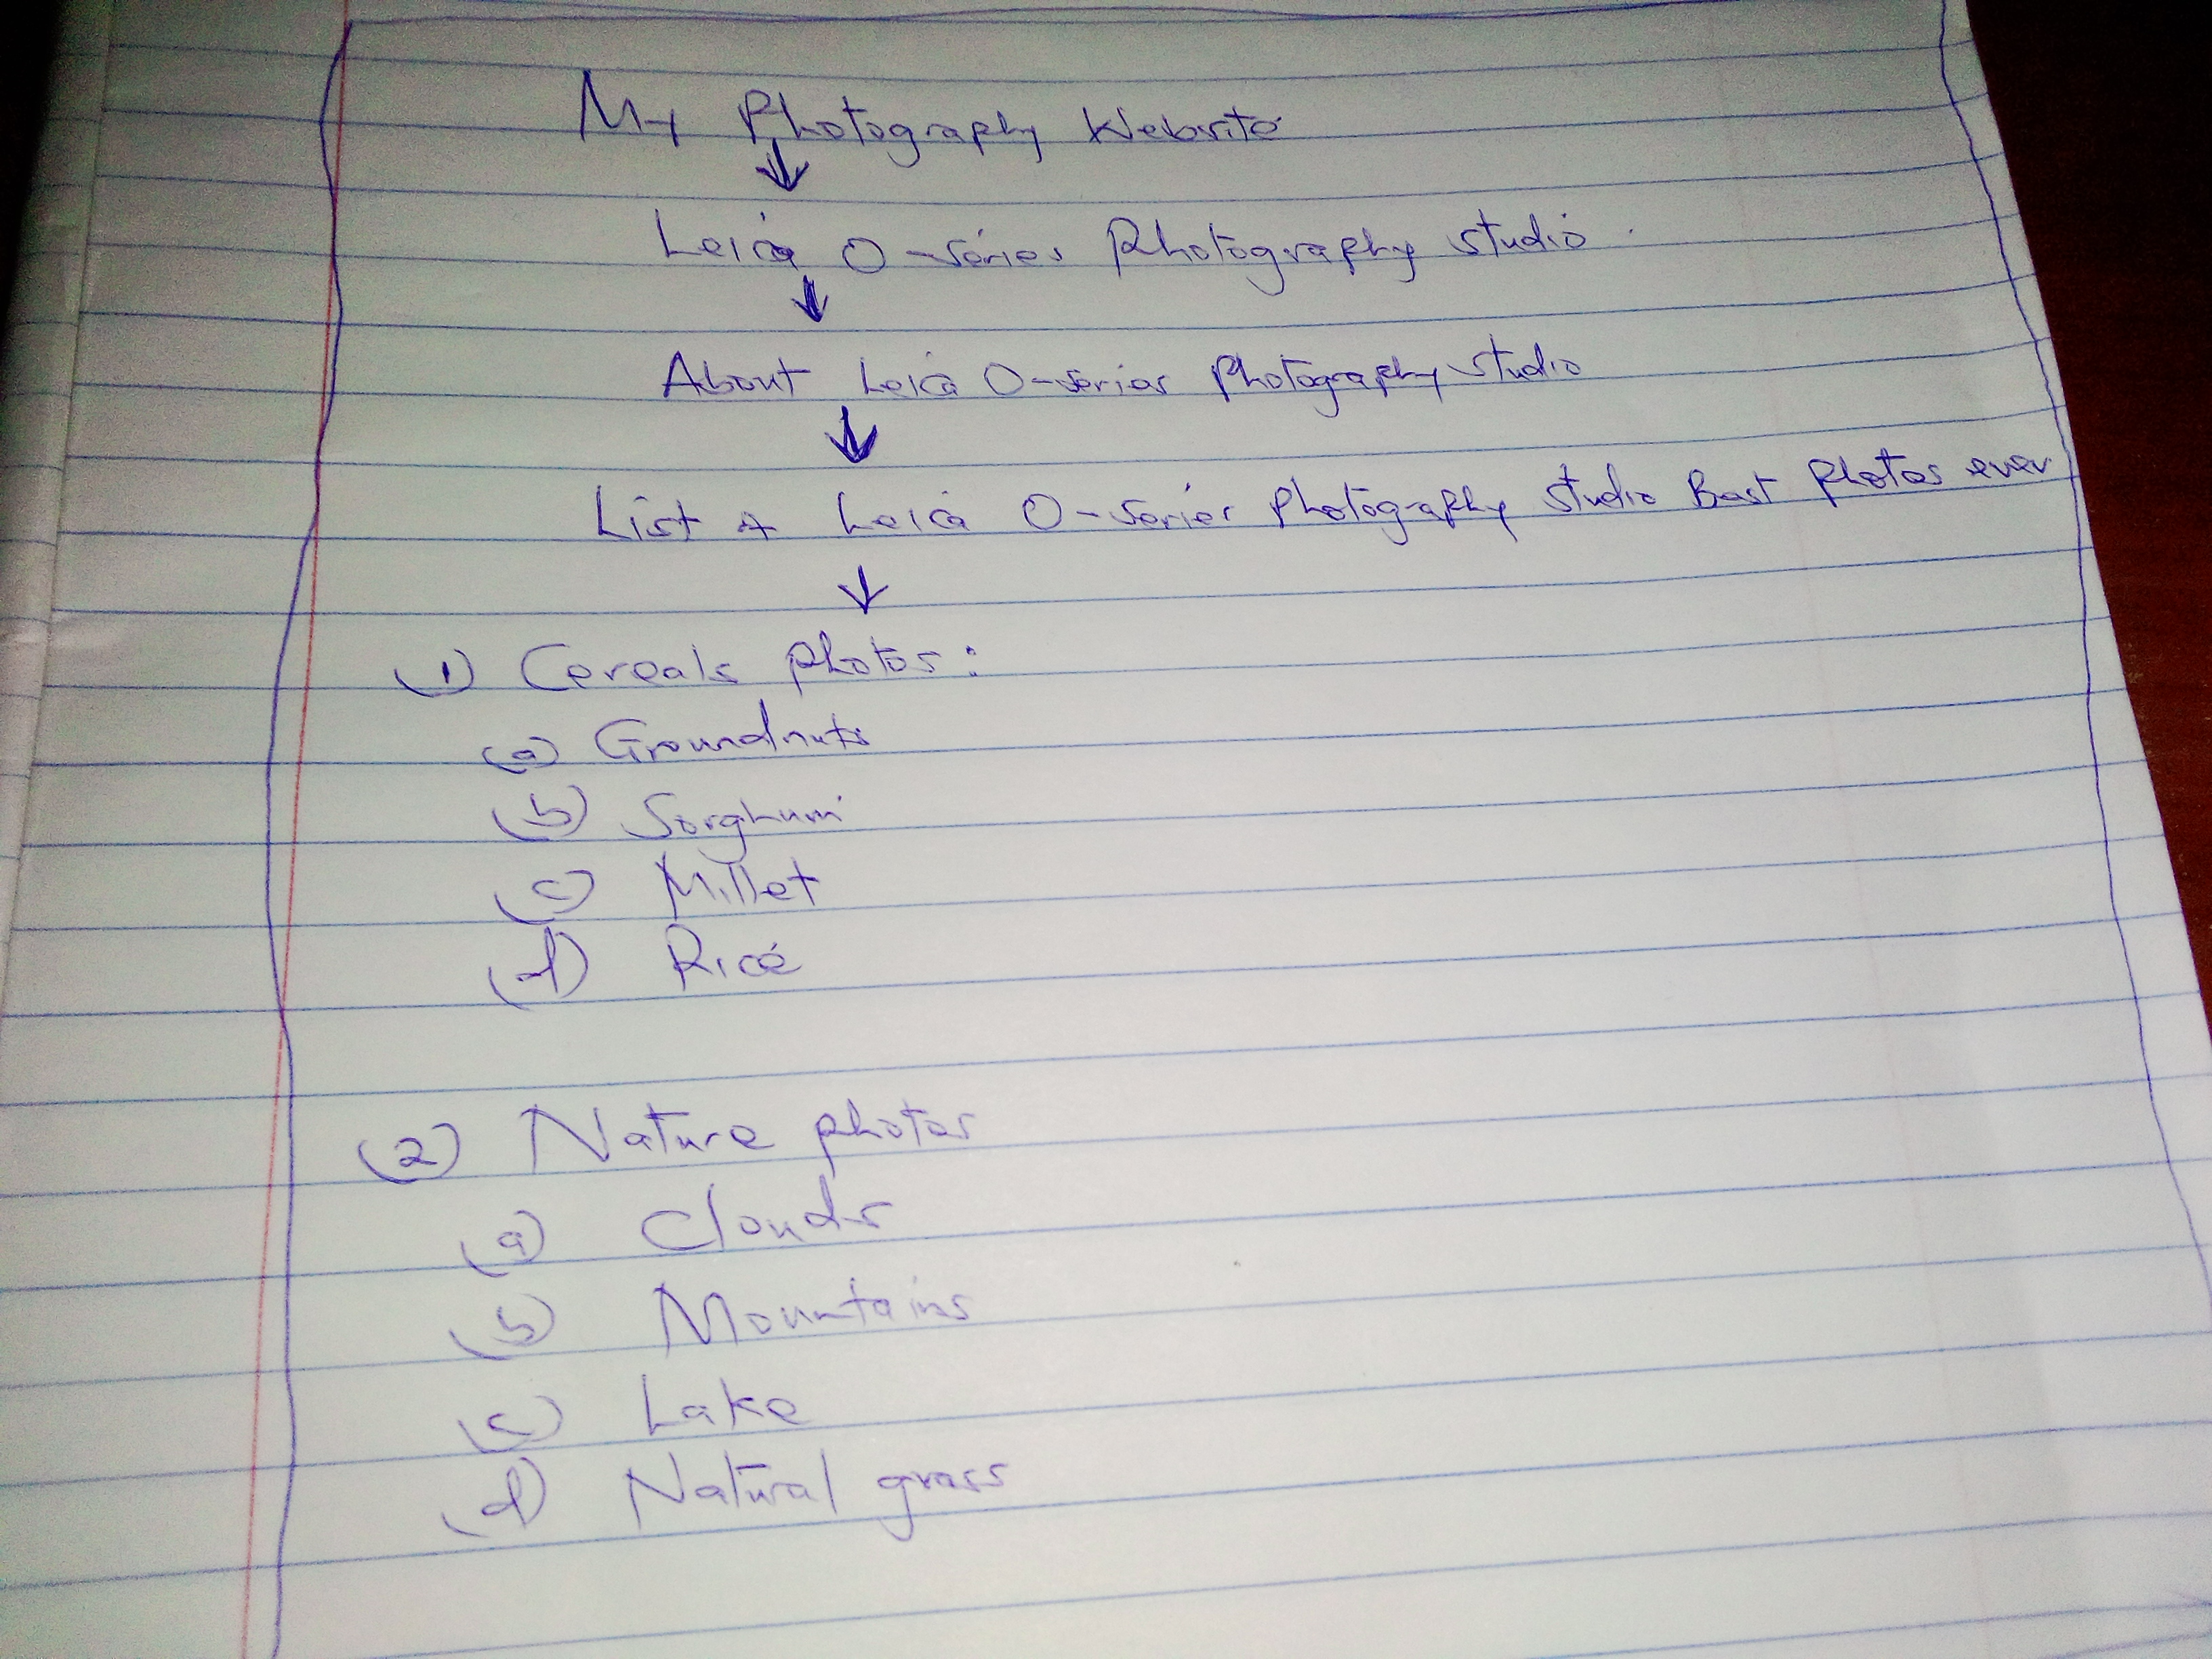 My Photography Website
Leica O-series Photography studio.
About Leica O-series Photography studio
List A Leica O-series Photography studio Best Photos ever
(1) Cereals photos:
(a) Groundnuts
(b) Sorghum
(c) Millet
(d) Rice
(2) Nature photos
(a) Clouds
(b) Mountains
(c) Lake
(d) Natural grass